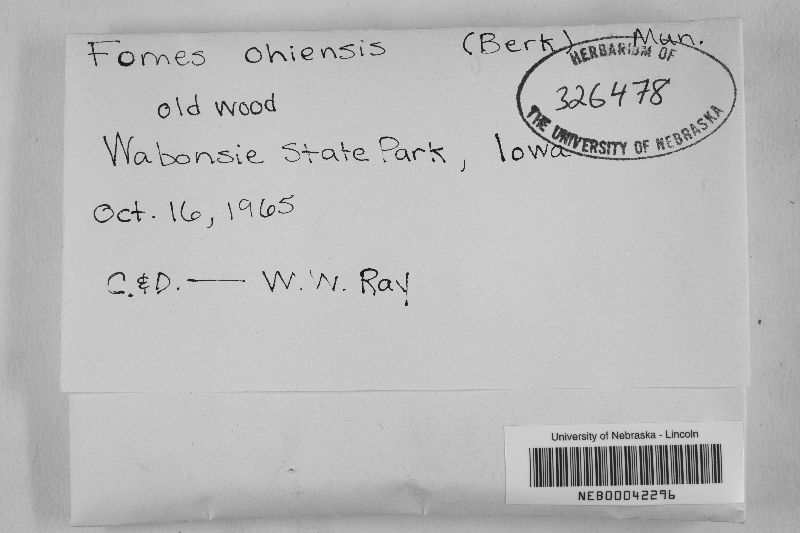 Fomes ohiensis (Berk) Mun.
HERBARIUM OF
326478
THE UNIVERSITY OF NEBRASKA
old wood
Wabonsie State Park, Iowa
Oct. 16, 1965
C. & D. — W. W. Ray
University of Nebraska - Lincoln
NEB00042296